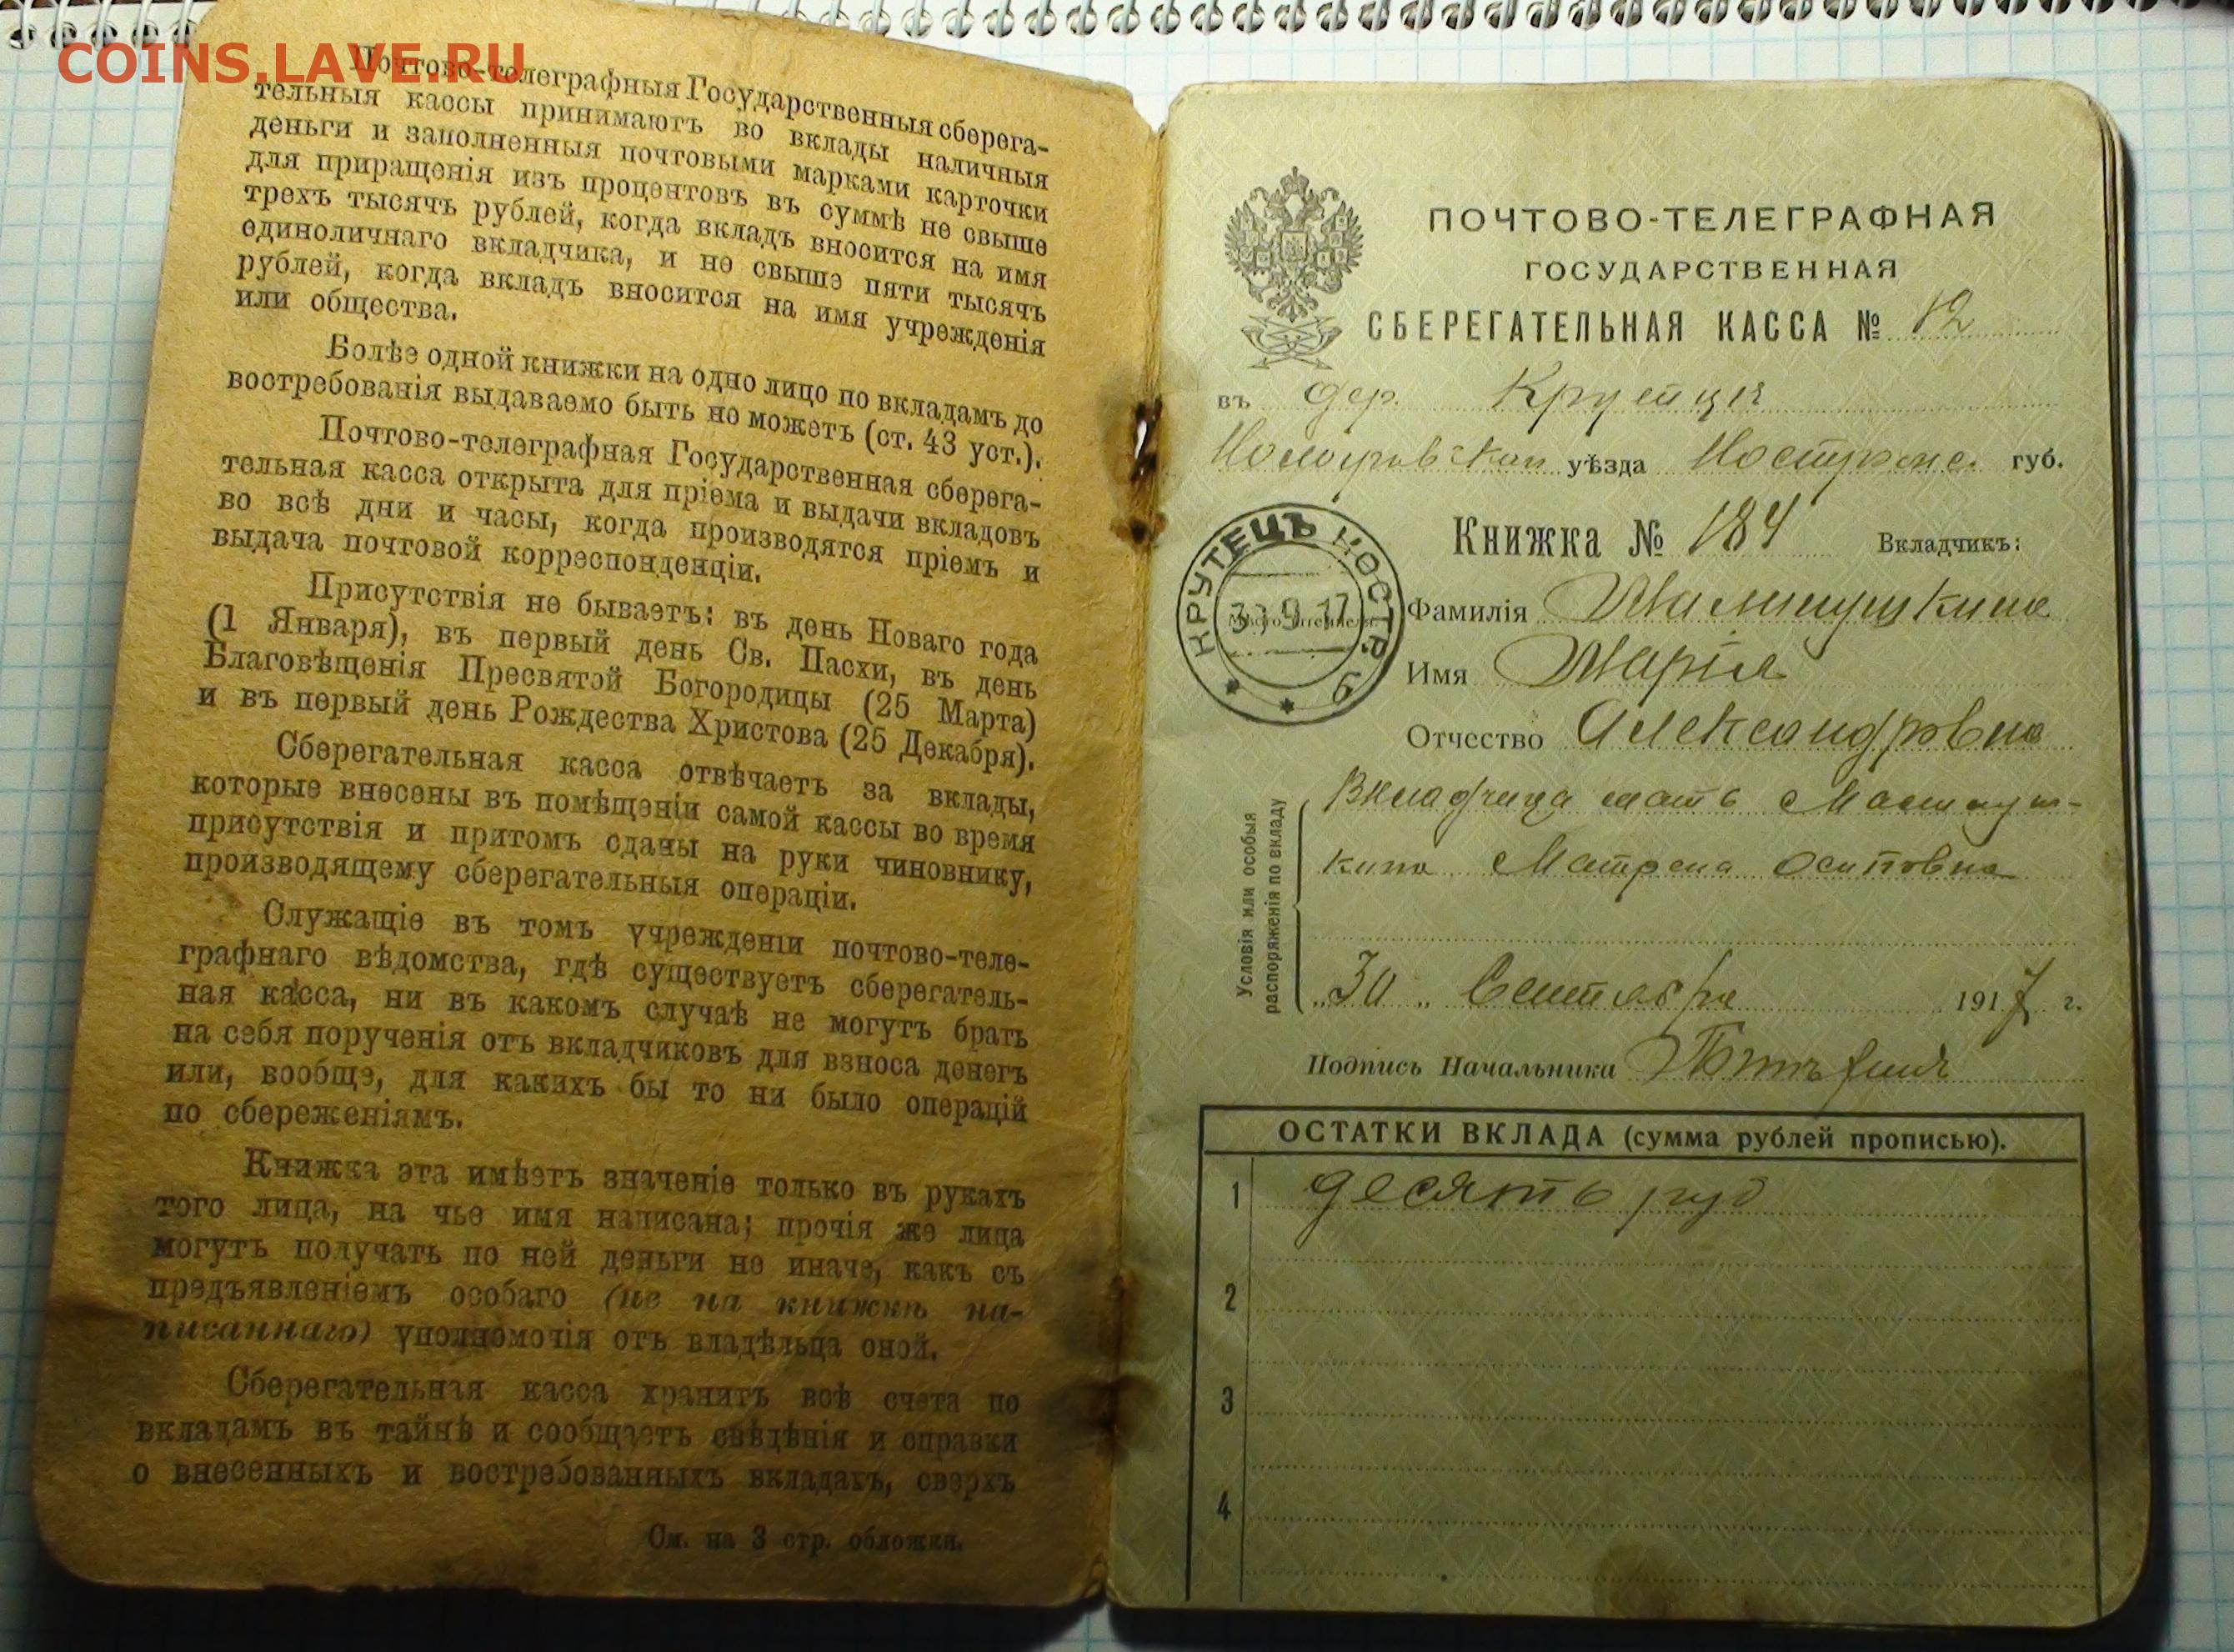 COINS.LAVE.RU
Почтово-телеграфныя Государственныя сберега-
тельныя кассы принимаютъ во вклады наличныя
деньги и заполненныя почтовыми марками карточки
для приращенія изъ процентовъ въ суммѣ не свыше
трехъ тысячъ рублей, когда вкладъ вносится на имя
единоличнаго вкладчика, и не свыше пяти тысячъ
рублей, когда вкладъ вносится на имя учрежденія
или общества.
Болѣе одной книжки на одно лицо по вкладамъ до
востребованія выдаваемо быть не можетъ (ст. 43 уст.).
Почтово-телеграфная Государственная сберега-
тельная касса открыта для пріема и выдачи вкладовъ
во всѣ дни и часы, когда производятся пріемъ и
выдача почтовой корреспонденціи.
Присутствія не бываетъ: въ день Новаго года
(1 Января), въ первый день Св. Пасхи, въ день
Благовѣщенія Пресвятой Богородицы (25 Марта)
и въ первый день Рождества Христова (25 Декабря).
Сберегательная касса отвѣчаетъ за вклады,
которые внесены въ помѣщеніи самой кассы во время
присутствія и притомъ сданы на руки чиновнику,
производящему сберегательныя операціи.
Служащіе въ томъ учрежденіи почтово-теле-
графнаго вѣдомства, гдѣ существуетъ сберегатель-
ная касса, ни въ какомъ случаѣ не могутъ брать
на себя порученія отъ вкладчиковъ для взноса денегъ
или, вообще, для какихъ бы то ни было операцій
по сбереженіямъ.
Книжка эта имѣетъ значеніе только въ рукахъ
того лица, на чье имя написана; прочія же лица
могутъ получать по ней деньги не иначе, какъ съ
предъявленіемъ особаго (не на книжкѣ на-
писаннаго) уполномочія отъ владѣльца оной.
Сберегательная касса хранитъ всѣ счета по
вкладамъ въ тайнѣ и сообщаетъ свѣдѣнія и справки
о внесенныхъ и востребованныхъ вкладахъ, сверхъ
См. на 3 стр. обложки.
ПОЧТОВО-ТЕЛЕГРАФНАЯ
ГОСУДАРСТВЕННАЯ
СБЕРЕГАТЕЛЬНАЯ КАССА № 12
въ дер.
уѣзда Костромс. губ.
КРУТЕЦЪ КОСТР. б
30 9 17
Книжка № 184 Вкладчикъ:
Фамилія
Имя Марія
Отчество Александровна
Условія или особыя
распоряженія по вкладу
Вкладчица мать
Матрена Осиповна
„30„ Сентября 1917 г.
Подпись Начальника
ОСТАТКИ ВКЛАДА (сумма рублей прописью).
1 десять руб
2
3
4